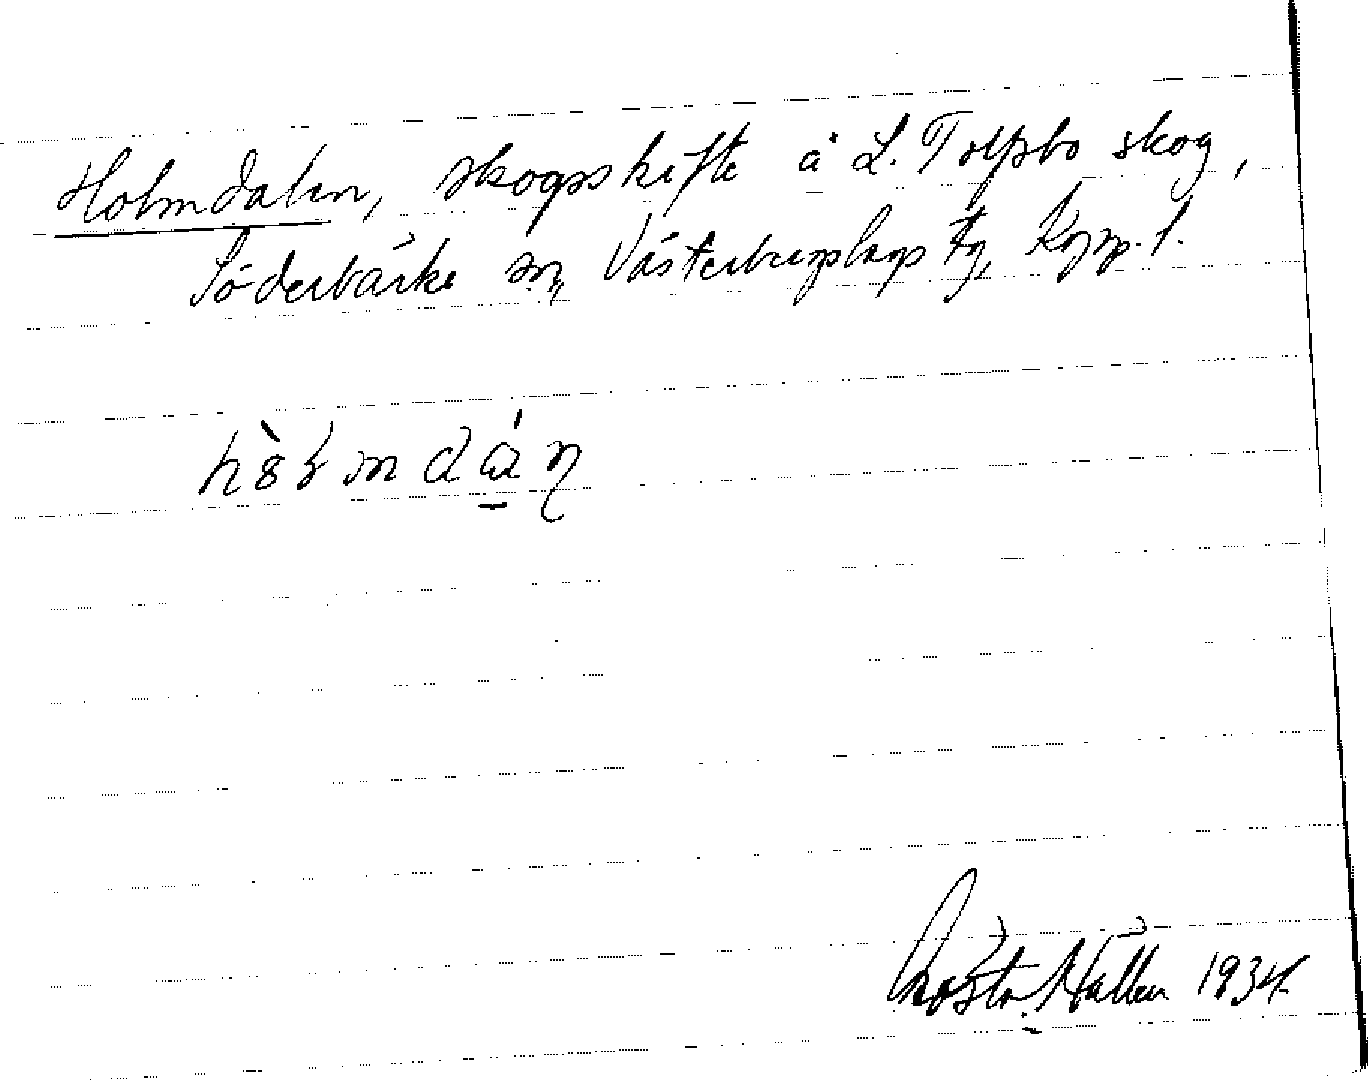 Holmdalen, skogsskifte å L. Tolfsbo skog,
Söderbärke sn, Västerbergslags fg, Kopp. l.
Gösta Hallén 1934.